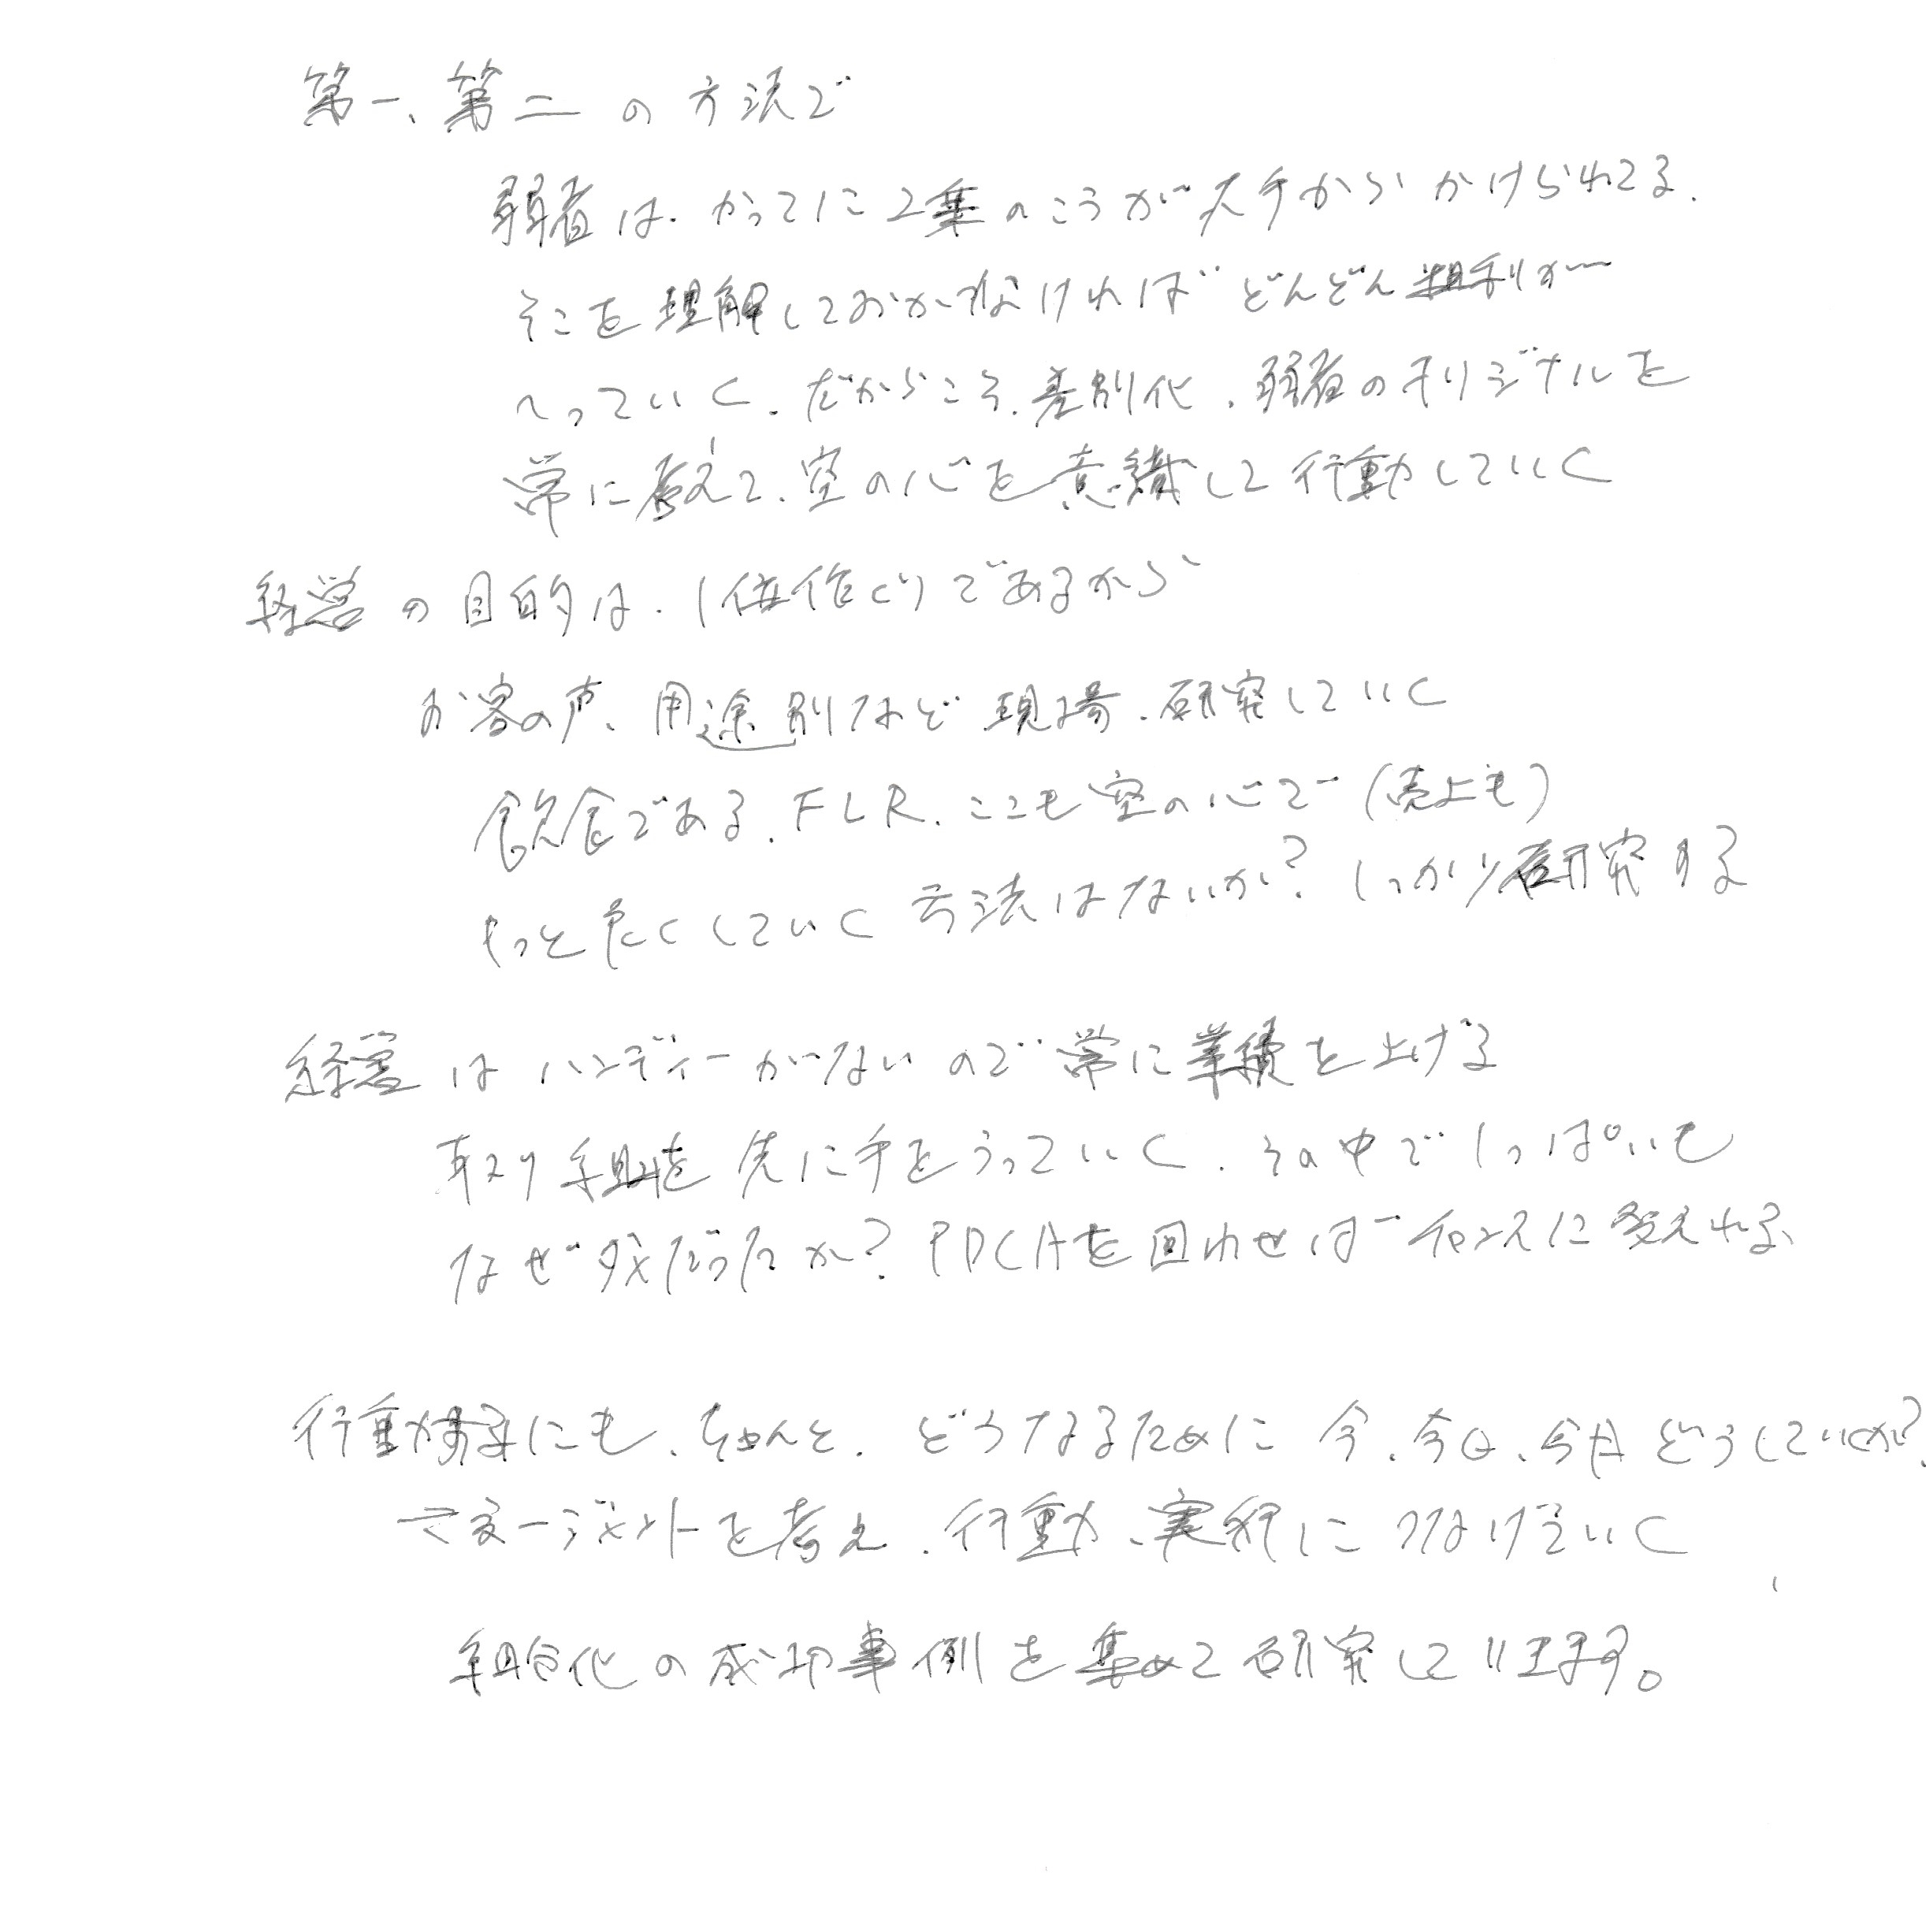 第一、第二の方法で
弱者は、かってに2乗のこうが大手からかけられてる.
そこを理解しておかなければどんどん粗利が
へっていく.だからこそ.差別化.弱者のオリジナルを
常に考えて、空の心を意識して行動していく
経営の目的は.1位作りであるから
お客の声、用途別など現場.研究していく
飲食である.FLR.ここも空の心で(売上も)
もっと良くしていく方法はないか?しっかり研究する
経営はハンディーがないので常に業績を上げる
取り組を先に手をうっていく.その中でしっぱいも
なぜダメだったか?PDCAを回わせばチャンスに変えれる、
行動にも、ちゃんと.どうなるために今、今日、今月どうしていくか?
マネージメントを考え.行動、実行につなげていく
組合化の成功事例を集めて研究しています。